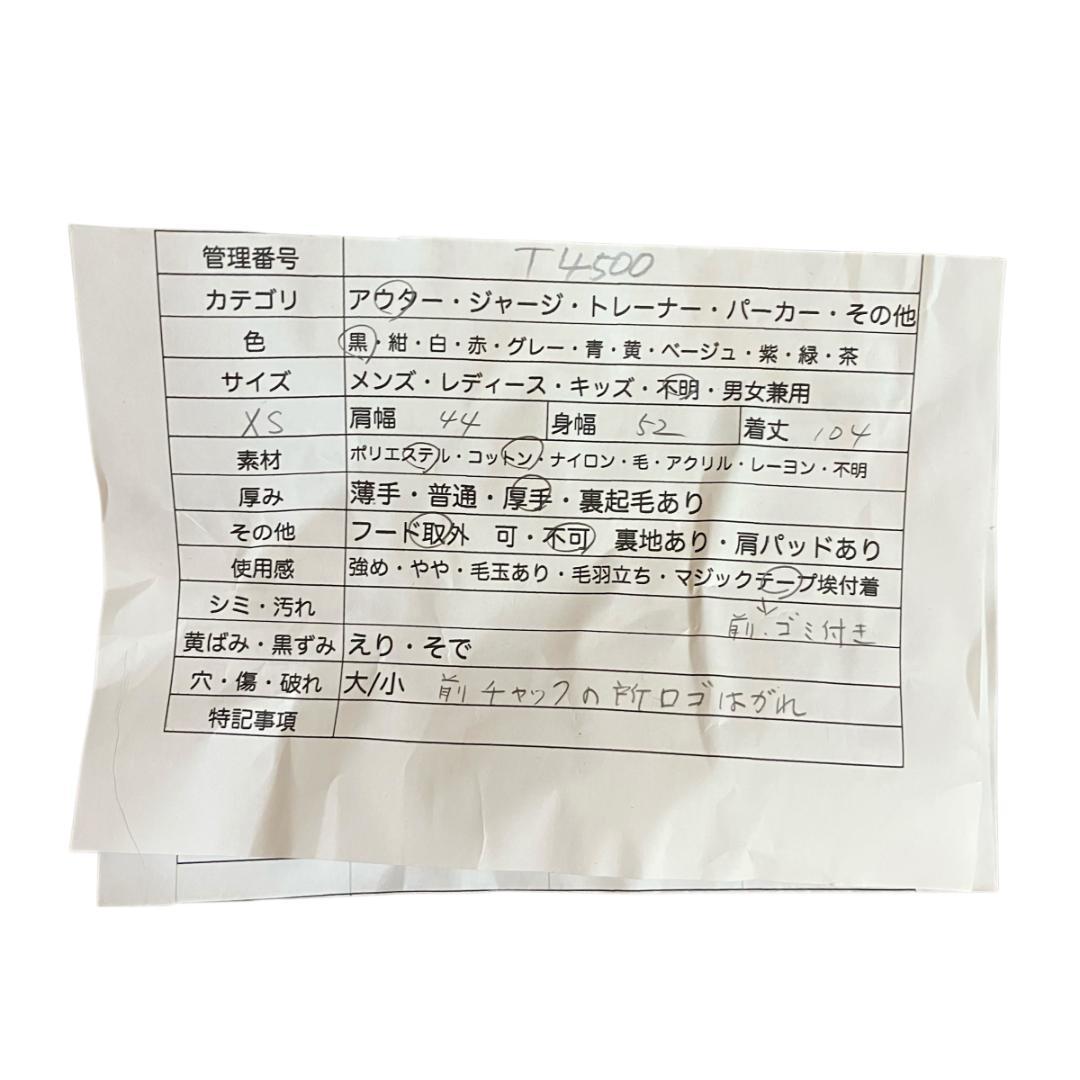 管理番号 T4500
カテゴリ アウター・ジャージ・トレーナー・パーカー・その他
色 黒・紺・白・赤・グレー・青・黄・ベージュ・紫・緑・茶
サイズ メンズ・レディース・キッズ・不明・男女兼用
XS 肩幅 44 身幅 52 着丈 104
素材 ポリエステル・コットン・ナイロン・毛・アクリル・レーヨン・不明
厚み 薄手・普通・厚手・裏起毛あり
その他 フード取外 可・不可 裏地あり・肩パッドあり
使用感 強め・やや・毛玉あり・毛羽立ち・マジックテープ埃付着
シミ・汚れ 前.ゴミ付き
黄ばみ・黒ずみ えり・そで
穴・傷・破れ 大/小 前チャックの所ロゴはがれ
特記事項